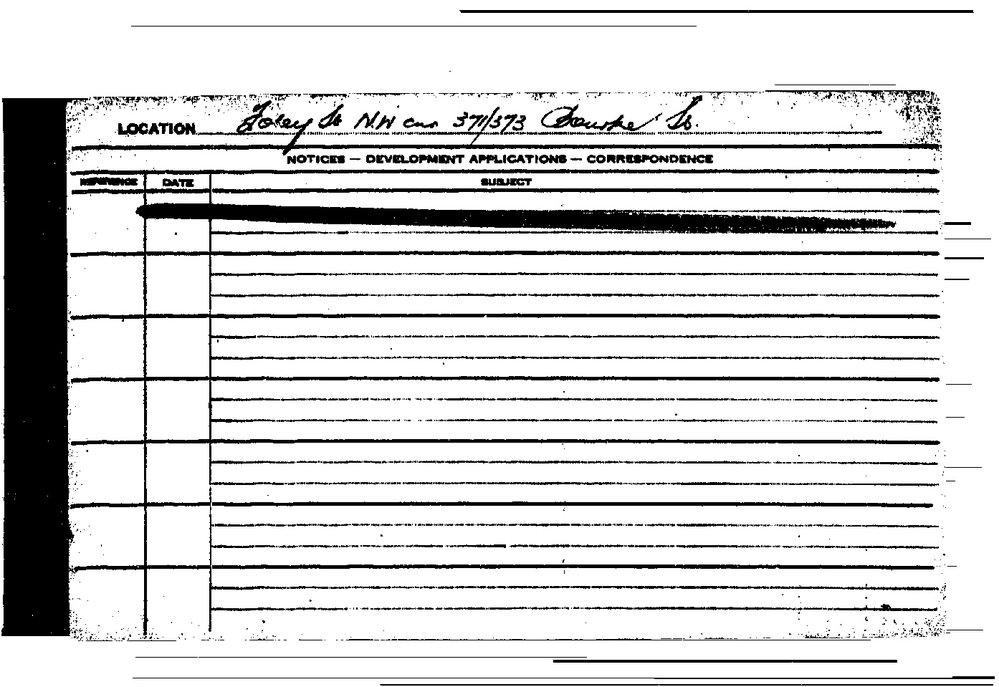 LOCATION Foley St N.W cnr 371/373 Bourke St.
NOTICES — DEVELOPMENT APPLICATIONS — CORRESPONDENCE
REFERENCE DATE SUBJECT